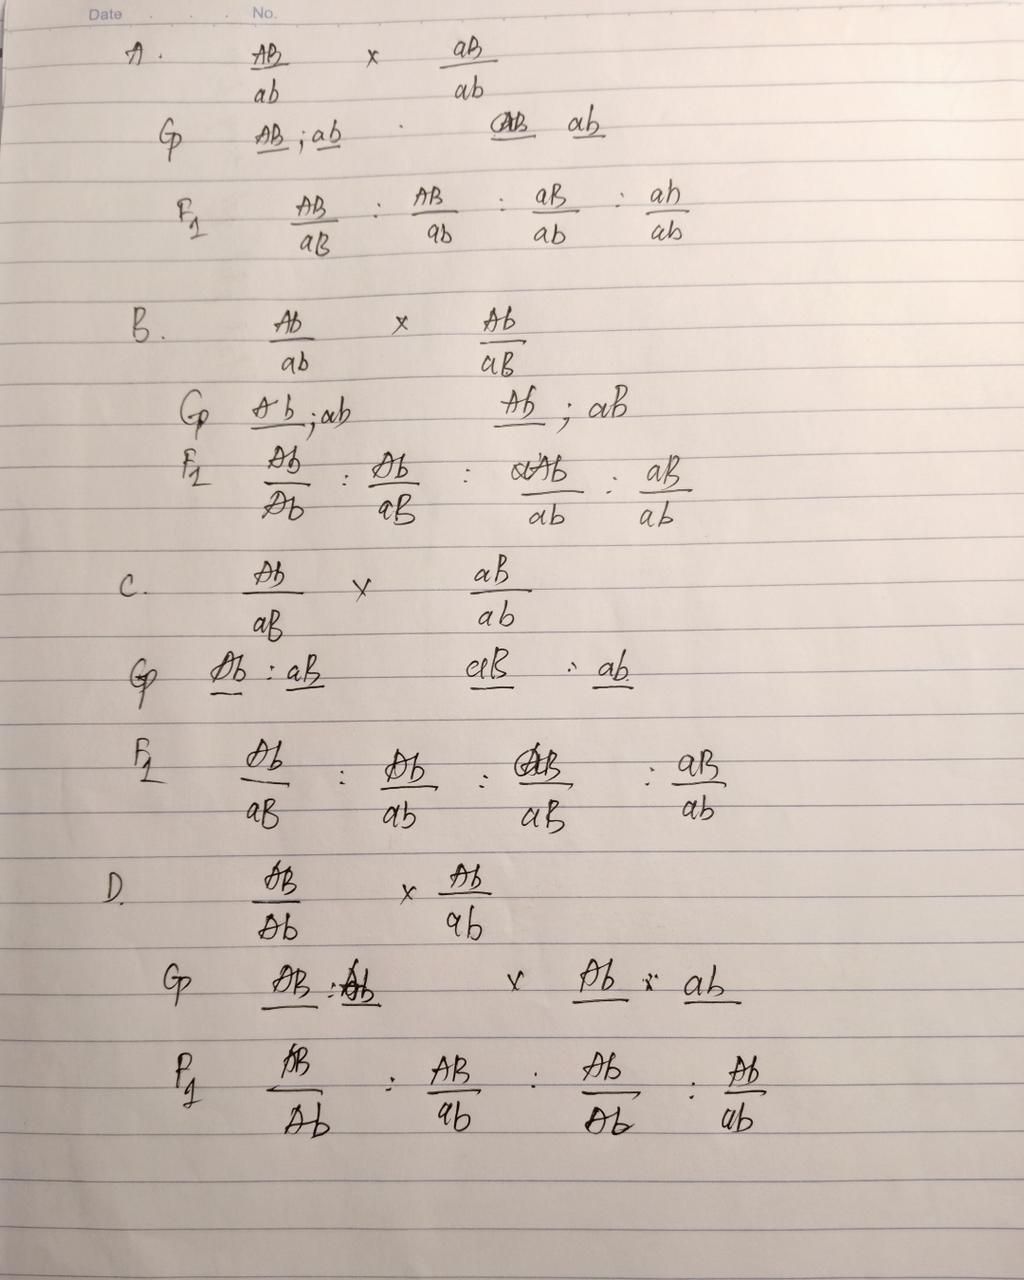 Date . . . No.
A. AB/ab x aB/ab
Gp AB ; ab . aB ab
F1 AB/aB : AB/ab : aB/ab : ab/ab
B. Ab/ab x Ab/aB
Gp Ab ; ab Ab ; aB
F1 Ab/Ab : Ab/aB : Ab/ab : aB/ab
C. Ab/aB x aB/ab
Gp Ab : aB aB : ab
F1 Ab/aB : Ab/ab : aB/aB : aB/ab
D. AB/Ab x Ab/ab
Gp AB : Ab x Ab : ab
F1 AB/Ab : AB/ab : Ab/Ab : Ab/ab